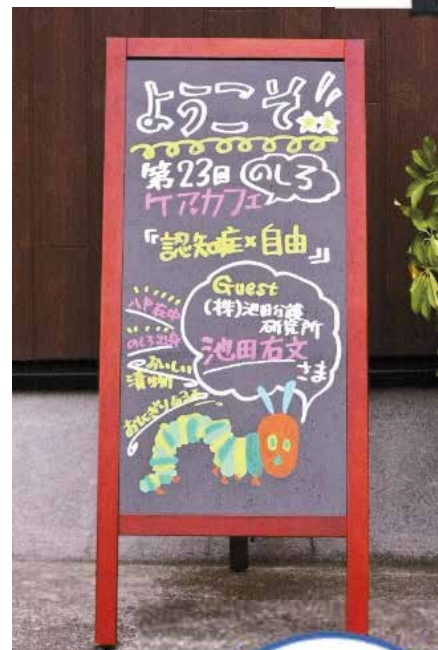 ようこそ!!
第23回 のしろ
ケアカフェ
『認知症×自由』
Guest
(株)池田介護
研究所
池田右文
さま
八戸在中
のしろ出身
おいしい
漬物
おにぎり